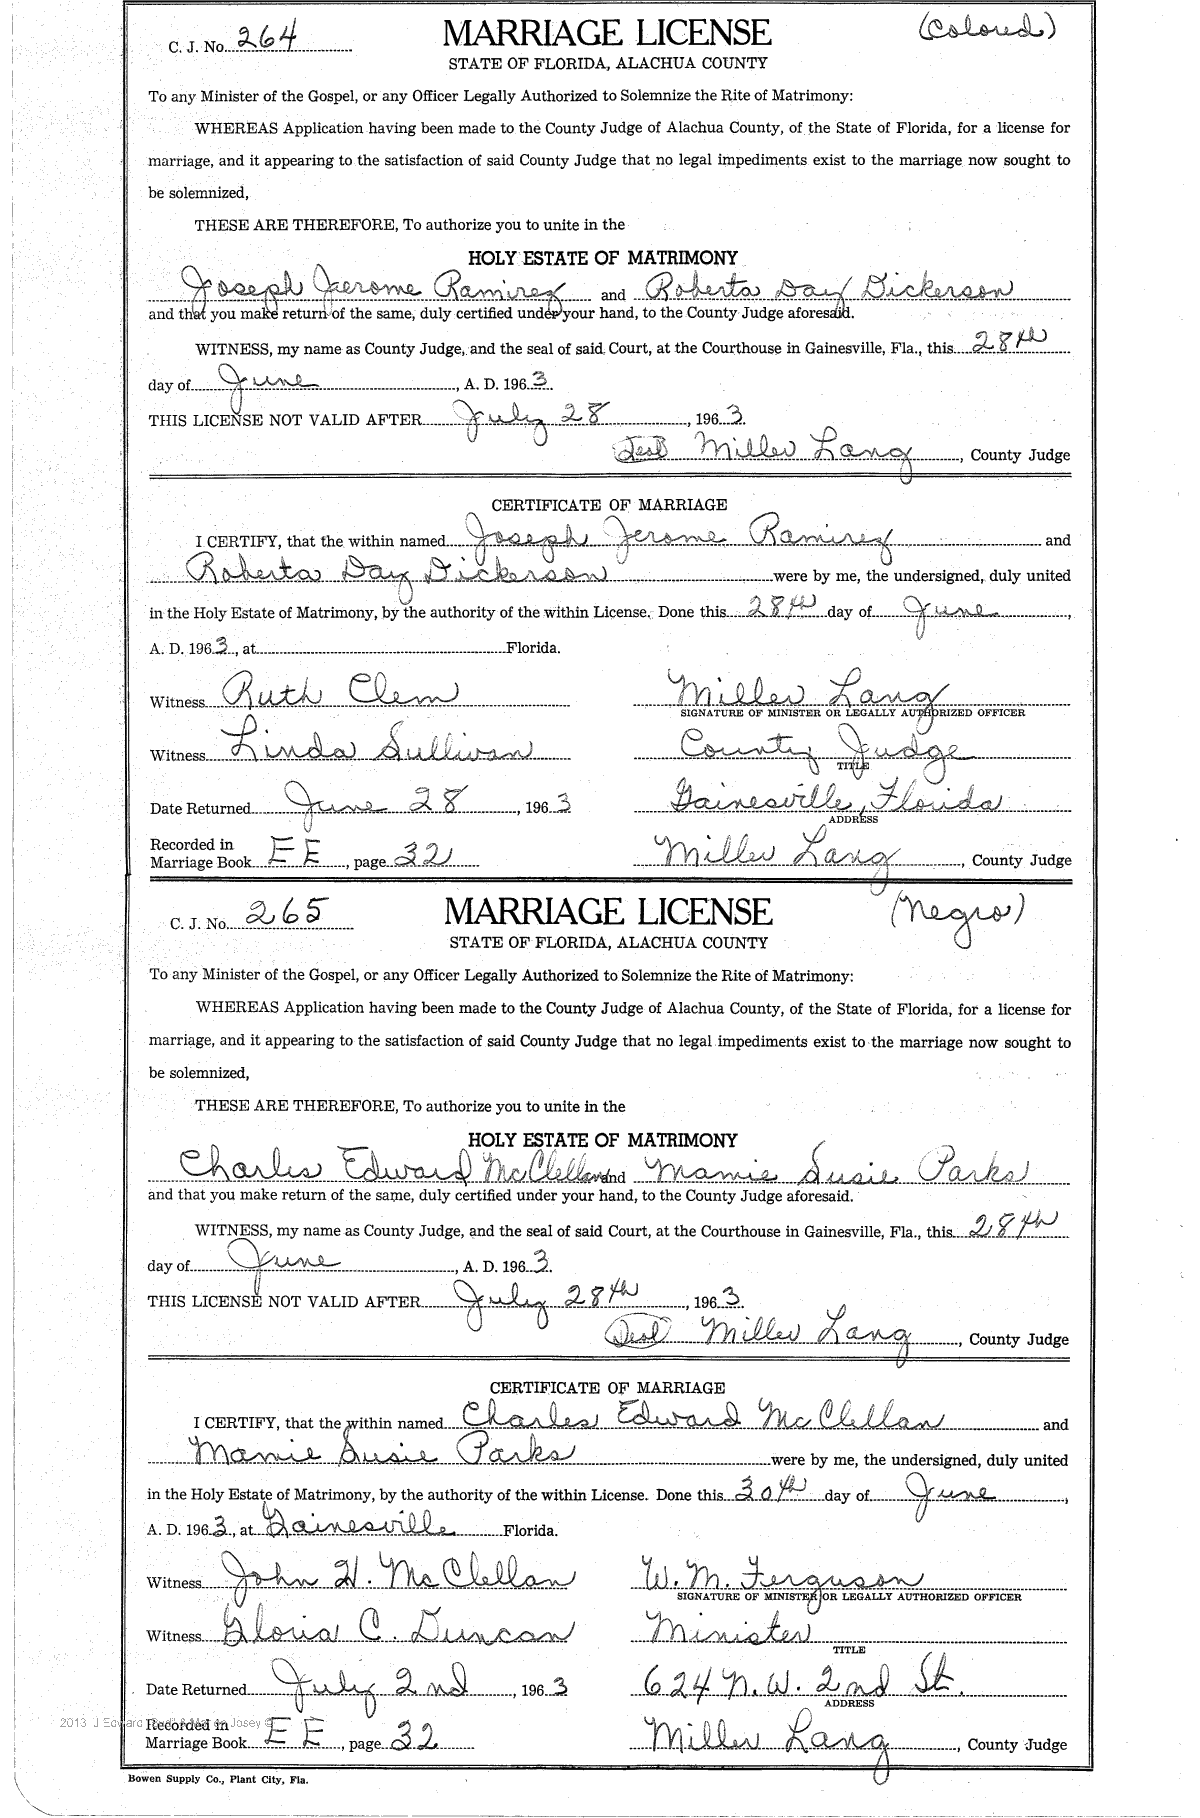 C. J. No. 264 MARRIAGE LICENSE (Colored)
STATE OF FLORIDA, ALACHUA COUNTY
To any Minister of the Gospel, or any Officer Legally Authorized to Solemnize the Rite of Matrimony:
WHEREAS Application having been made to the County Judge of Alachua County, of the State of Florida, for a license for
marriage, and it appearing to the satisfaction of said County Judge that no legal impediments exist to the marriage now sought to
be solemnized,
THESE ARE THEREFORE, To authorize you to unite in the
HOLY ESTATE OF MATRIMONY
Joseph Jerome Ramirez and Roberta Day Dickerson
and that you make return of the same, duly certified under your hand, to the County Judge aforesaid.
WITNESS, my name as County Judge, and the seal of said Court, at the Courthouse in Gainesville, Fla., this 28th
day of June, A. D. 1963.
THIS LICENSE NOT VALID AFTER July 28, 1963.
(Seal) Miller Lang, County Judge
CERTIFICATE OF MARRIAGE
I CERTIFY, that the within named Joseph Jerome Ramirez and
Roberta Day Dickerson were by me, the undersigned, duly united
in the Holy Estate of Matrimony, by the authority of the within License. Done this 28th day of June,
A. D. 1963, at Florida.
Witness Ruth Clem Miller Lang
SIGNATURE OF MINISTER OR LEGALLY AUTHORIZED OFFICER
Witness Linda Sullivan County Judge
TITLE
Date Returned June 28, 1963 Gainesville, Florida
ADDRESS
Recorded in
Marriage Book EE, page 32 Miller Lang, County Judge
C. J. No. 265 MARRIAGE LICENSE (Negro)
STATE OF FLORIDA, ALACHUA COUNTY
To any Minister of the Gospel, or any Officer Legally Authorized to Solemnize the Rite of Matrimony:
WHEREAS Application having been made to the County Judge of Alachua County, of the State of Florida, for a license for
marriage, and it appearing to the satisfaction of said County Judge that no legal impediments exist to the marriage now sought to
be solemnized,
THESE ARE THEREFORE, To authorize you to unite in the
HOLY ESTATE OF MATRIMONY
Charles Edward McClellan and Mamie Susie Parks
and that you make return of the same, duly certified under your hand, to the County Judge aforesaid.
WITNESS, my name as County Judge, and the seal of said Court, at the Courthouse in Gainesville, Fla., this 28th
day of June, A. D. 1963.
THIS LICENSE NOT VALID AFTER July 28th, 1963.
(Seal) Miller Lang, County Judge
CERTIFICATE OF MARRIAGE
I CERTIFY, that the within named Charles Edward McClellan and
Mamie Susie Parks were by me, the undersigned, duly united
in the Holy Estate of Matrimony, by the authority of the within License. Done this 30th day of June,
A. D. 1963, at Gainesville Florida.
Witness John H. McClellan W. M. Ferguson
SIGNATURE OF MINISTER OR LEGALLY AUTHORIZED OFFICER
Witness Gloria C. Duncan Minister
TITLE
Date Returned July 2nd, 1963 624 N.W. 2nd St.
ADDRESS
2013 J Edward Josey ©
Recorded in
Marriage Book EE, page 32 Miller Lang, County Judge
Bowen Supply Co., Plant City, Fla.